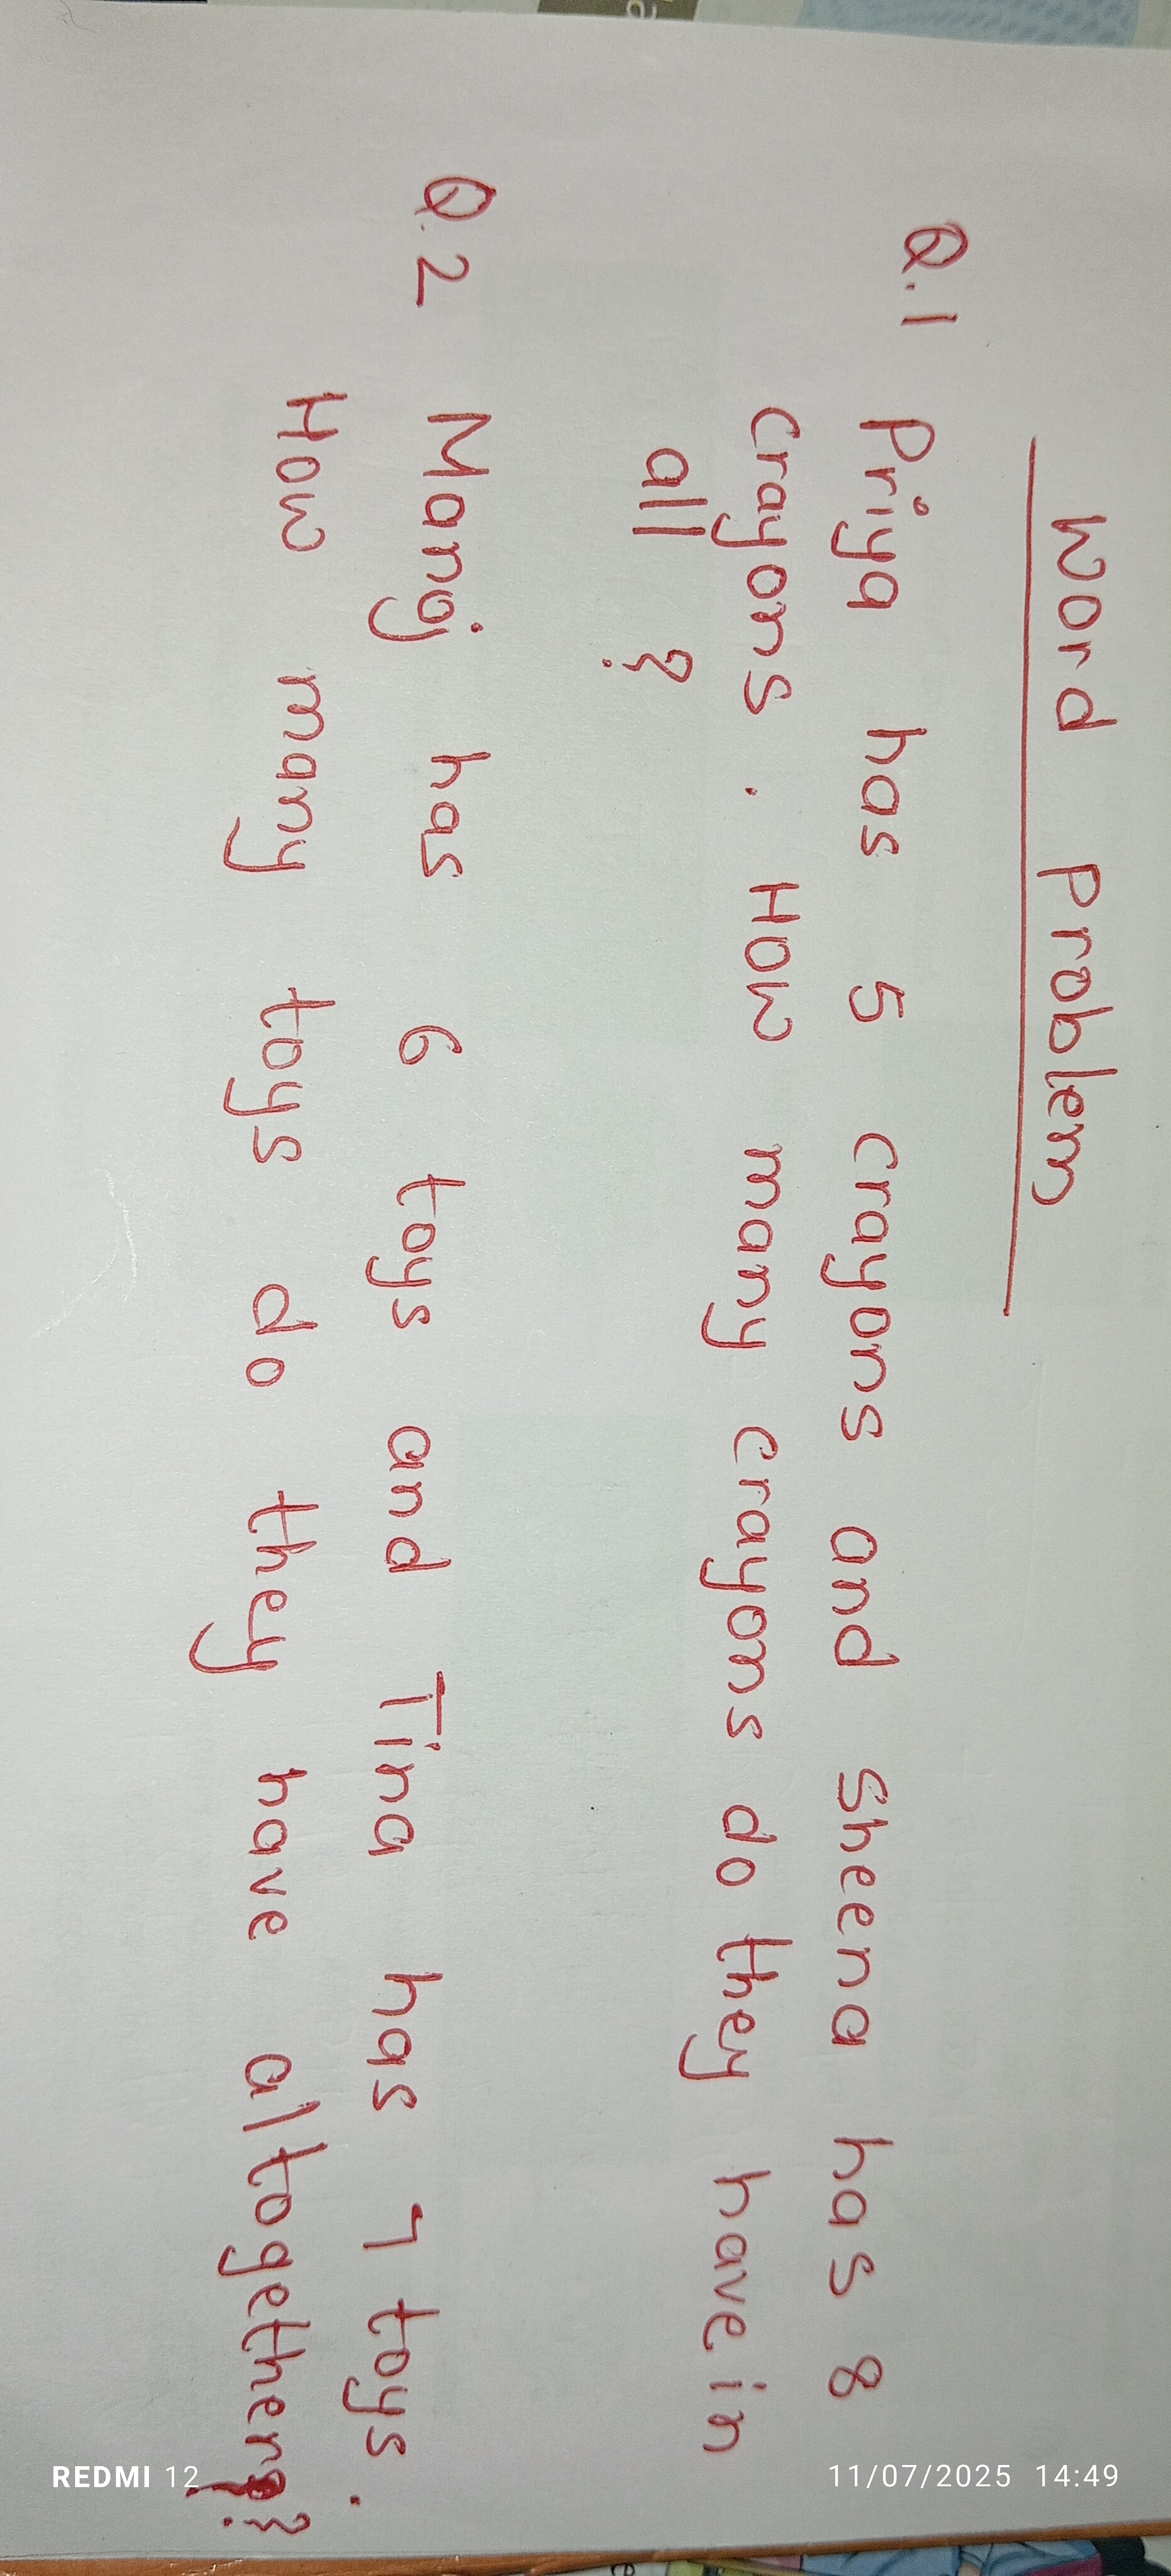 Word Problem
Q.1 Priya has 5 crayons and Sheena has 8
crayons. How many crayons do they have in
all ?
Q.2 Manoj has 6 toys and Tina has 7 toys.
How many toys do they have altogether?
REDMI 12
11/07/2025 14:49